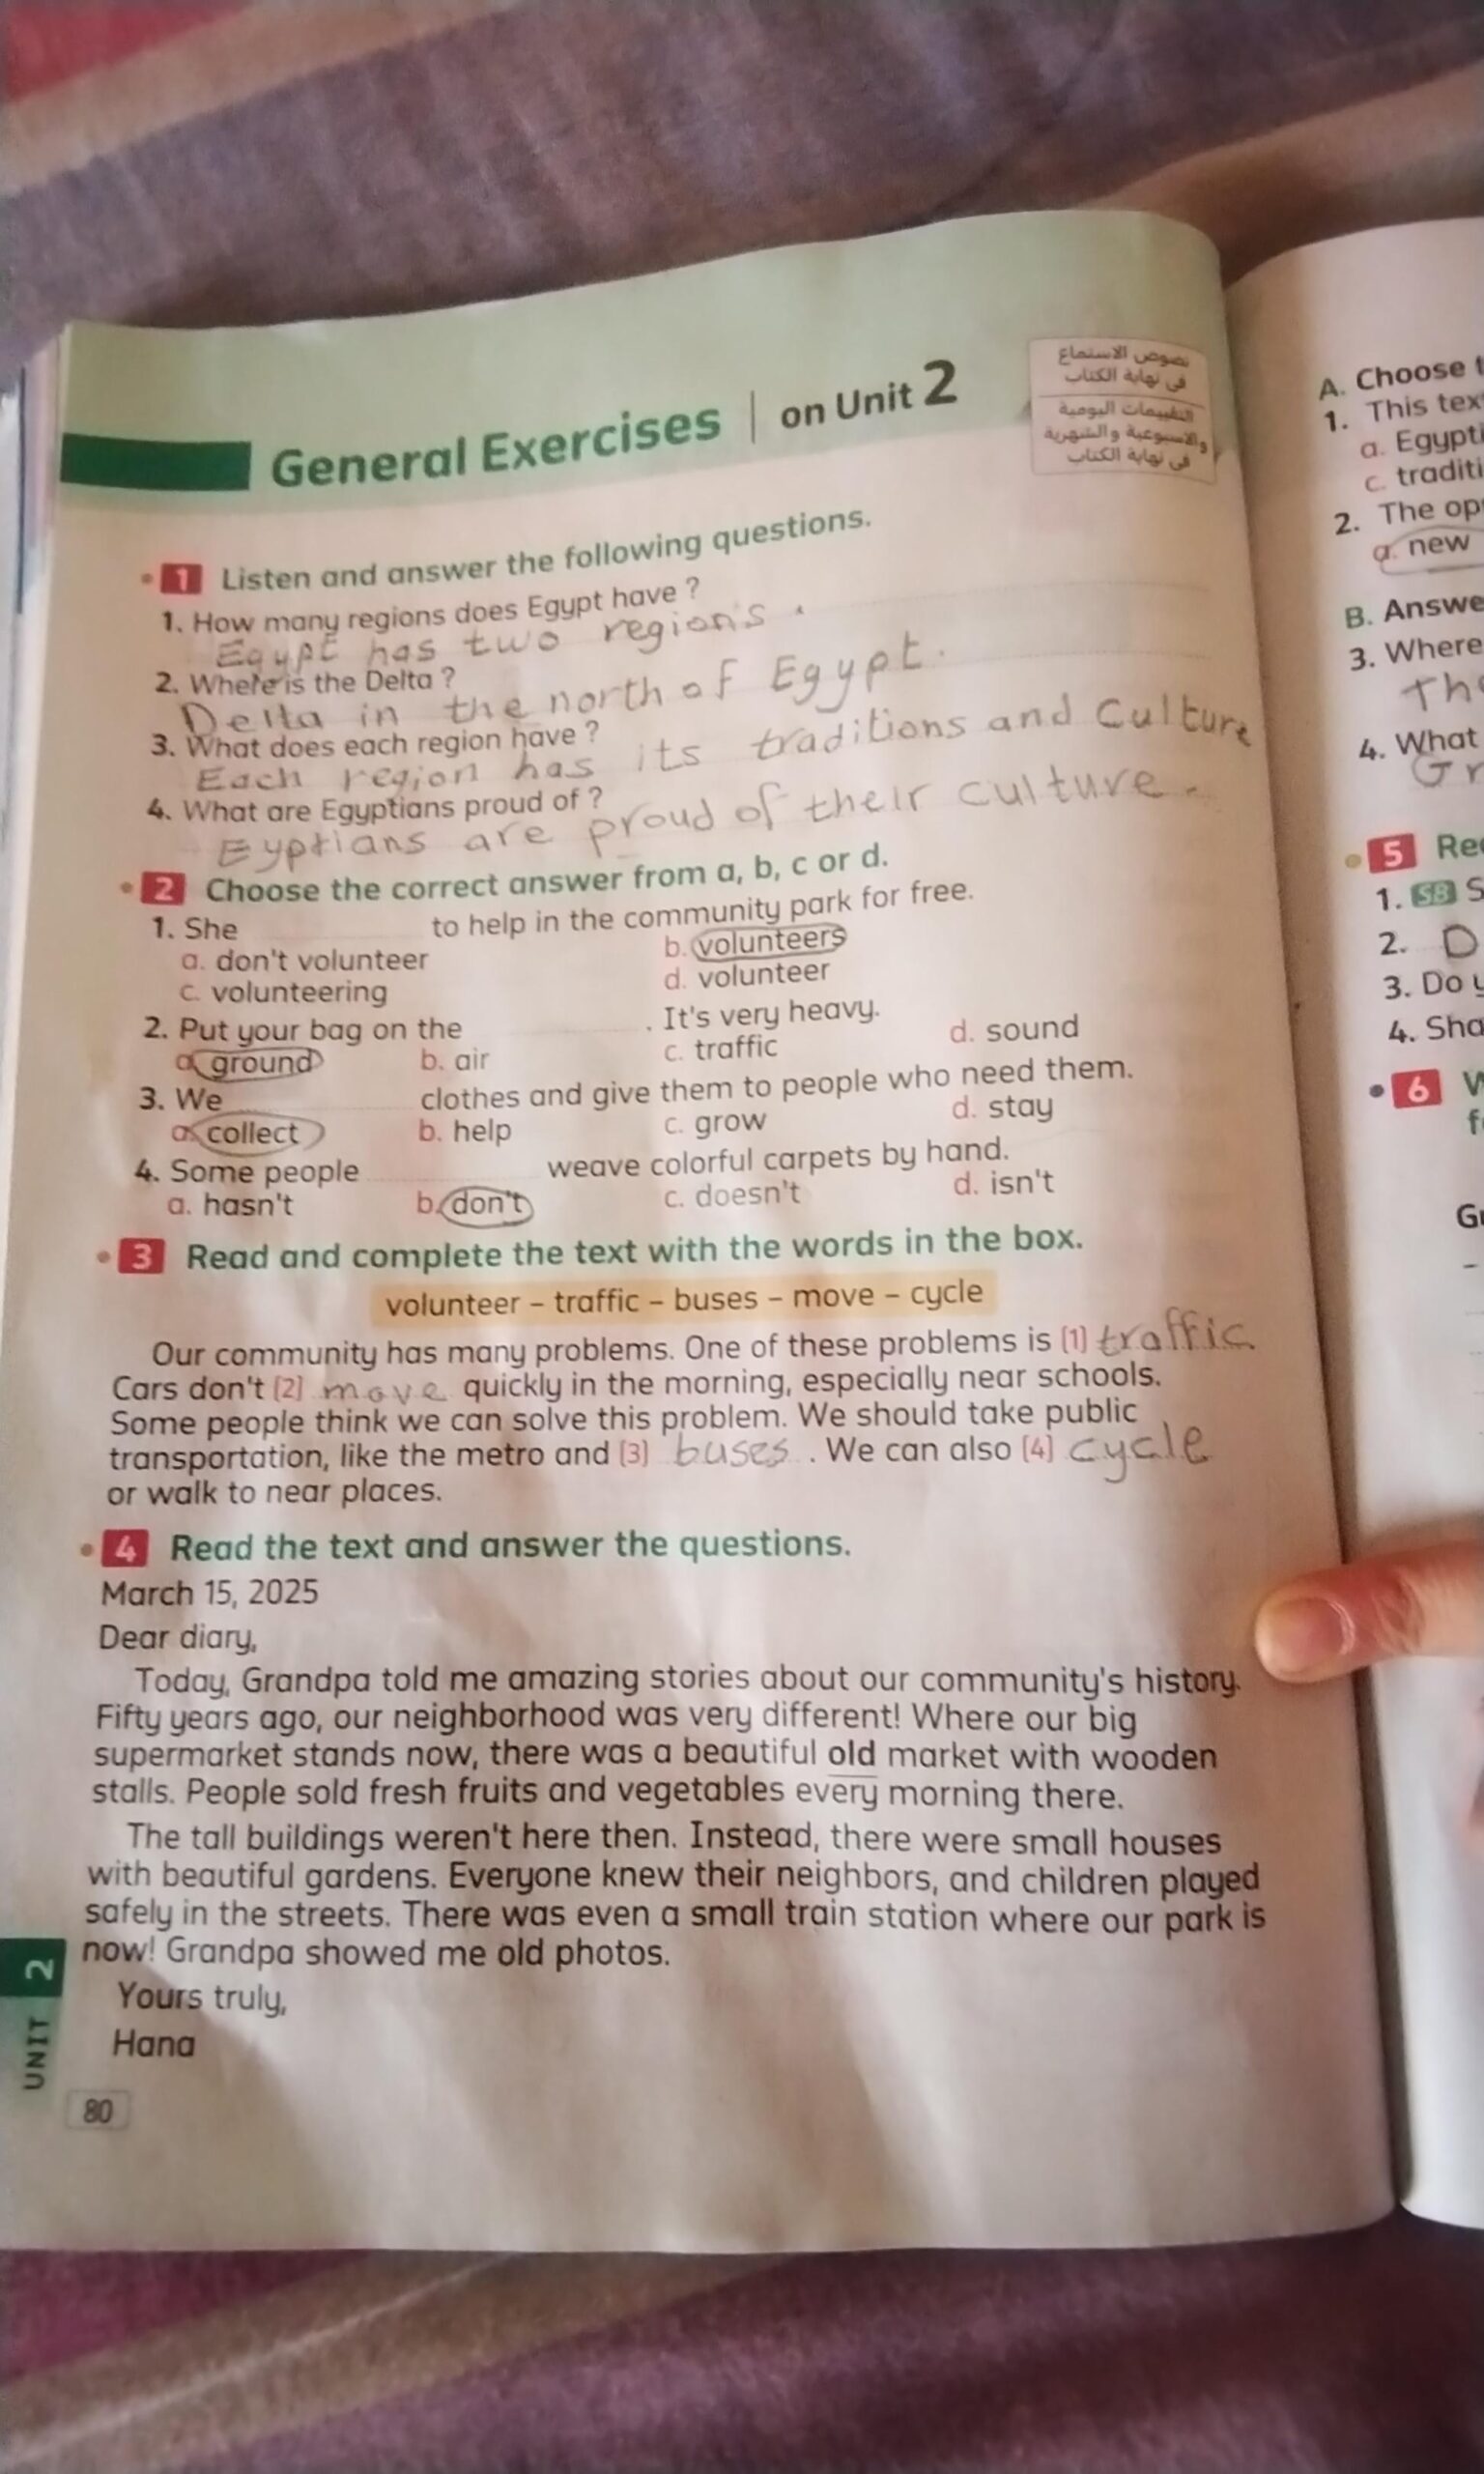 General Exercises | on Unit 2
نصوص الاستماع
فى نهاية الكتاب
التقييمات اليومية
والأسبوعية والشهرية
فى نهاية الكتاب
1 Listen and answer the following questions.
1. How many regions does Egypt have ?
Egypt has two regions .
2. Where is the Delta ?
Delta in the north of Egypt.
3. What does each region have ?
Each region has its traditions and Culture
4. What are Egyptians proud of ?
Eyptians are proud of their culture.
2 Choose the correct answer from a, b, c or d.
1. She to help in the community park for free.
a. don't volunteer b. volunteers
c. volunteering d. volunteer
2. Put your bag on the . It's very heavy.
a. ground b. air c. traffic d. sound
3. We clothes and give them to people who need them.
a. collect b. help c. grow d. stay
4. Some people weave colorful carpets by hand.
a. hasn't b. don't c. doesn't d. isn't
3 Read and complete the text with the words in the box.
volunteer – traffic – buses – move – cycle
Our community has many problems. One of these problems is (1) traffic
Cars don't (2) move quickly in the morning, especially near schools.
Some people think we can solve this problem. We should take public
transportation, like the metro and (3) buses . We can also (4) cycle
or walk to near places.
4 Read the text and answer the questions.
March 15, 2025
Dear diary,
Today, Grandpa told me amazing stories about our community's history.
Fifty years ago, our neighborhood was very different! Where our big
supermarket stands now, there was a beautiful old market with wooden
stalls. People sold fresh fruits and vegetables every morning there.
The tall buildings weren't here then. Instead, there were small houses
with beautiful gardens. Everyone knew their neighbors, and children played
safely in the streets. There was even a small train station where our park is
now! Grandpa showed me old photos.
Yours truly,
Hana
UNIT 2
80
A. Choose
1. This
a.
c.
2. The
a. new
B.
3. Where
4. What
5
1. SB
2. D
3. Do
4.
6